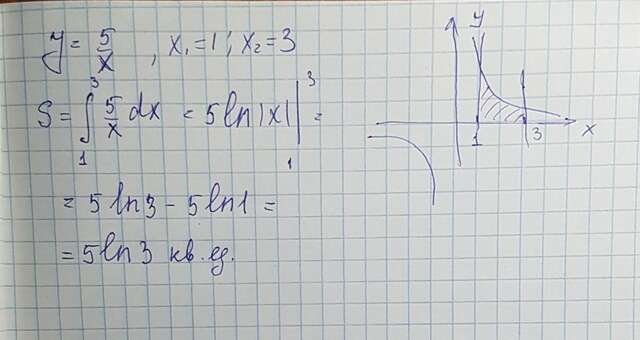 y = 5/x , x₁ = 1 ; x₂ = 3
S = ∫₁³ 5/x dx = 5 ln |x| |₁³ =
= 5 ln 3 − 5 ln 1 =
= 5 ln 3 кв. ед.
y
1 3 x